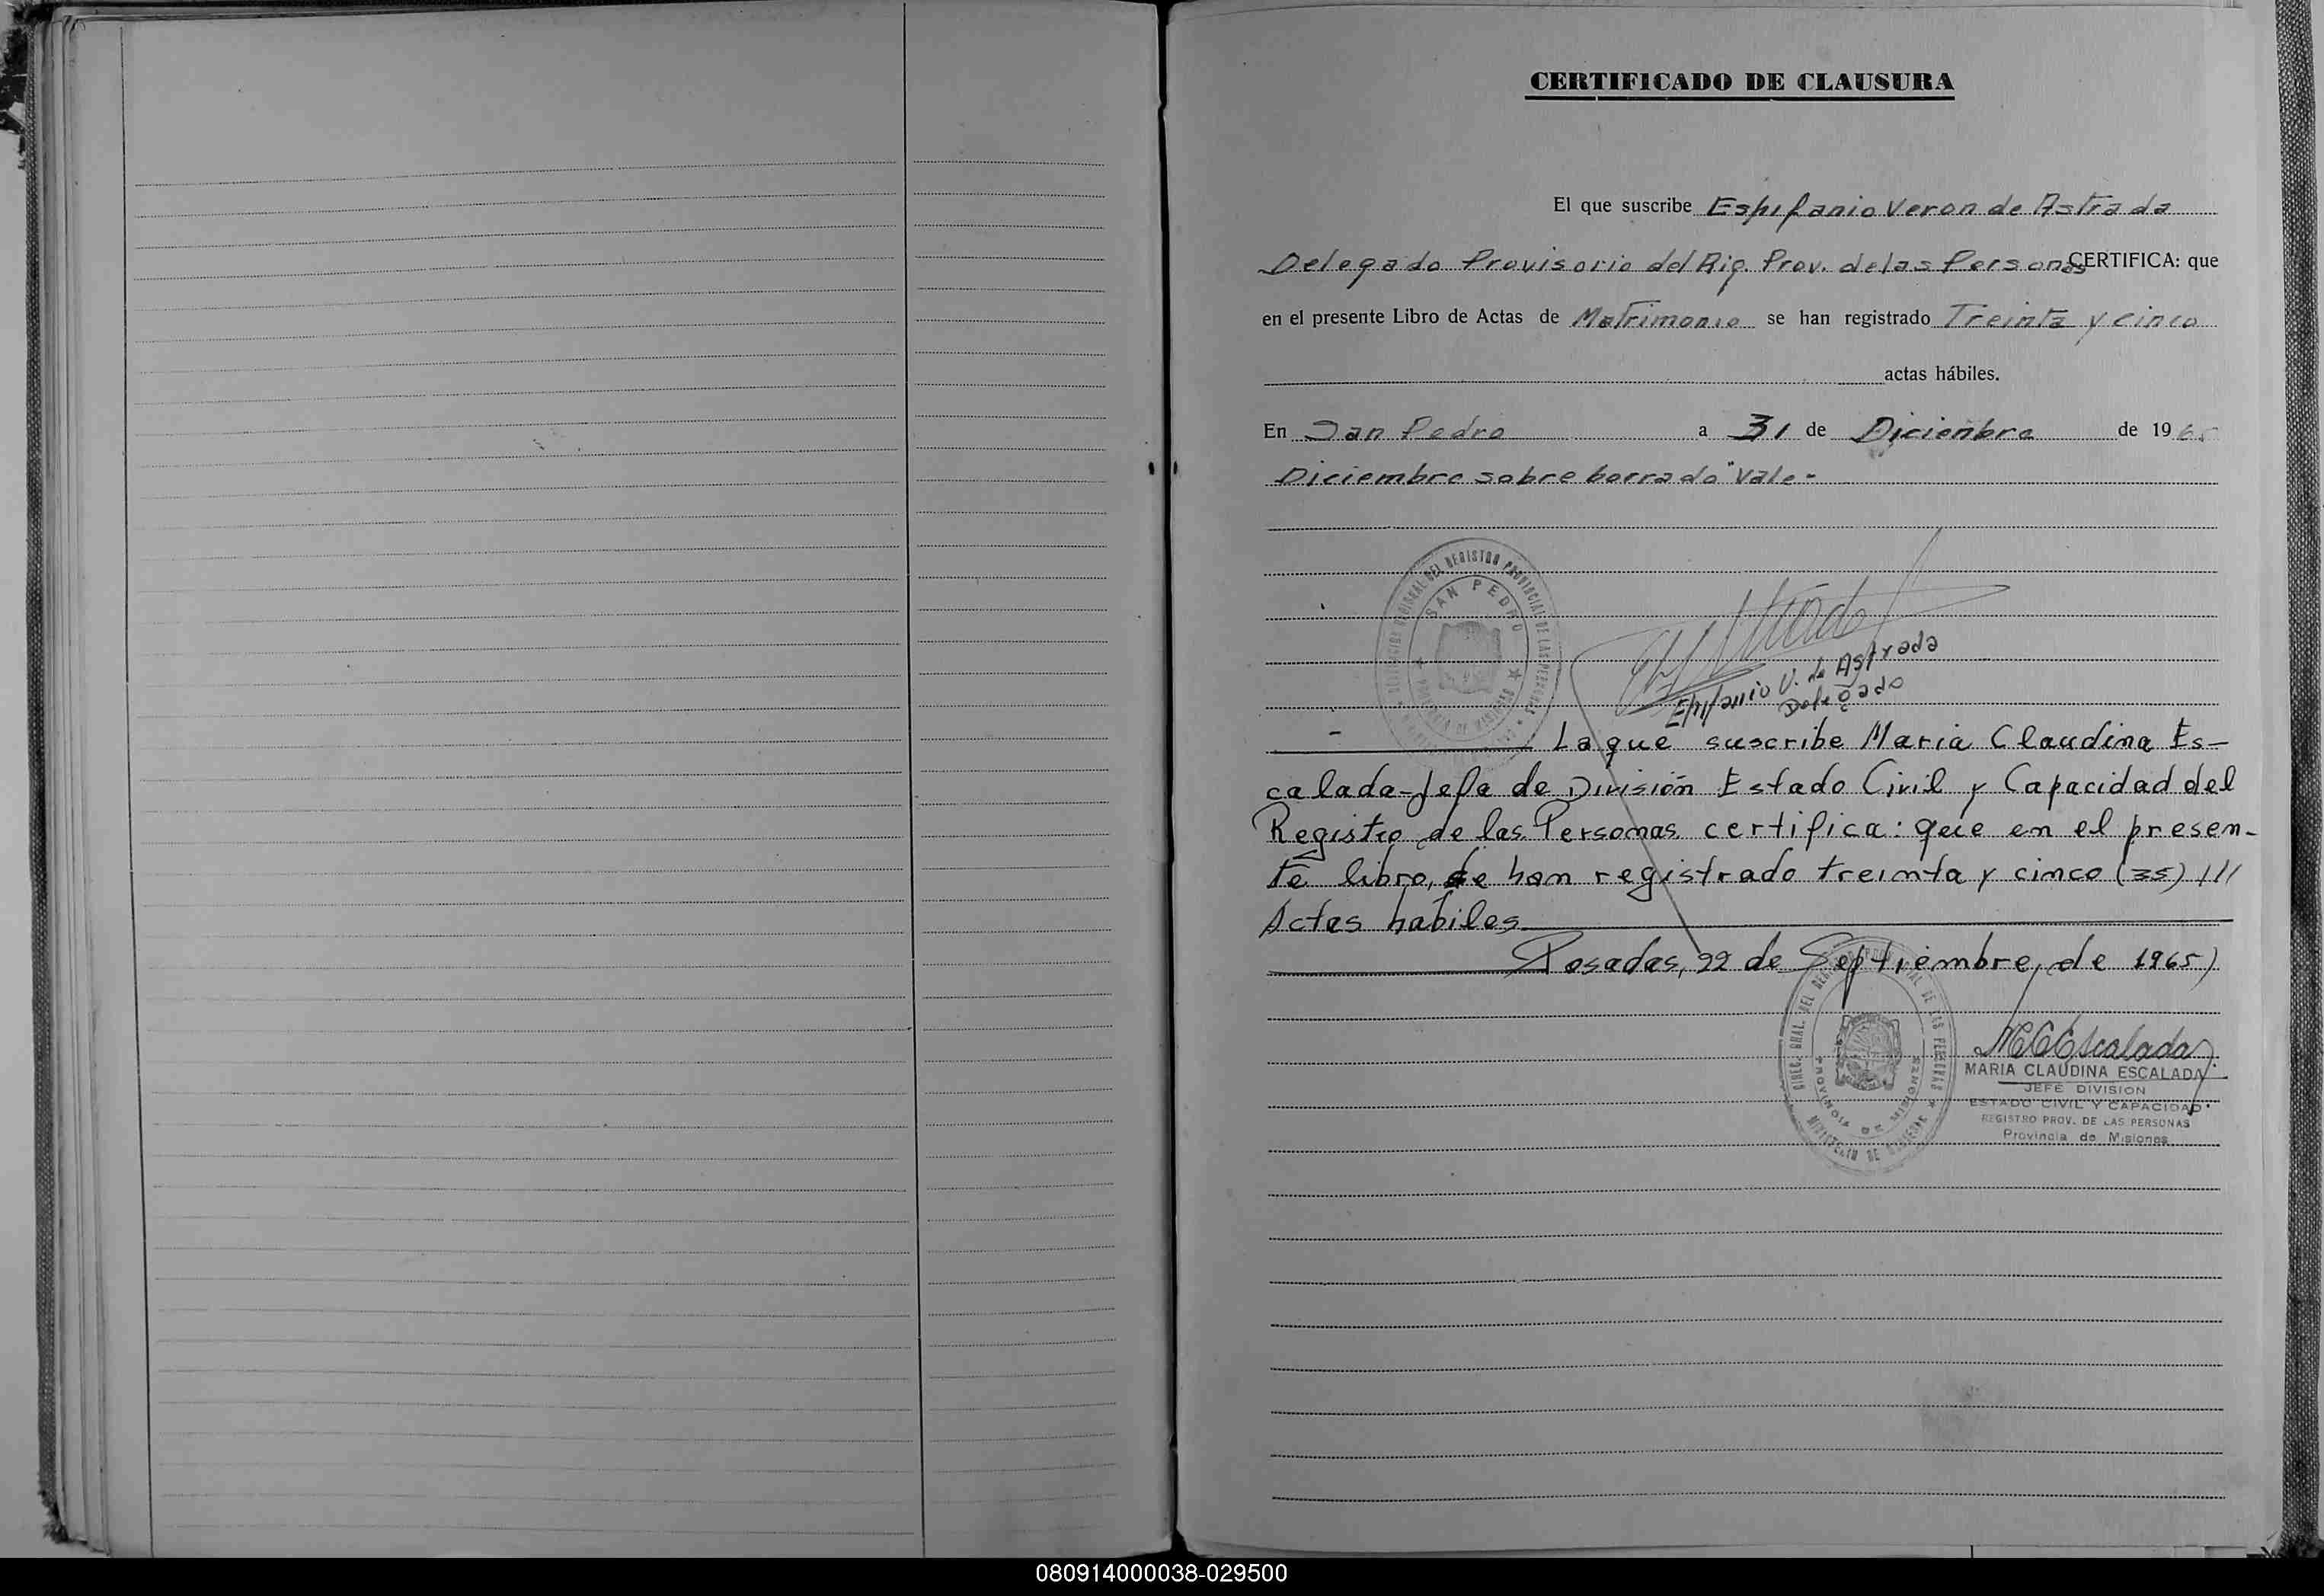 CERTIFICADO DE CLAUSURA
El que suscribe Espifanio Veron de Astrada
Delegado Provisorio del Rig. Prov. de las Personas CERTIFICA: que
en el presente Libro de Actas de Matrimonio se han registrado Treinta y cinco
actas hábiles.
En San Pedro a 31 de Diciembre de 196
Diciembre sobre borrado "Vale-
REGISTRO PROVINCIAL DE LAS PERSONAS
SAN PEDRO
PROVINCIA DE MISIONES
Epifanio V. de Astrada
Delegado
La que suscribe Maria Claudina Es-
calada-Jefa de División Estado Civil y Capacidad del
Registro de las Personas certifica: que en el presen-
te libro, se han registrado treinta y cinco (35) ///
Actas habiles
Posadas, 22 de Septiembre, de 1965)
DIREC. GRAL. DEL REGISTRO PROVINCIAL DE LAS PERSONAS
PROVINCIA DE MISIONES
MINISTERIO DE
MCEscalada
MARIA CLAUDINA ESCALADA
JEFE DIVISION
ESTADO CIVIL Y CAPACIDAD
REGISTRO PROV. DE LAS PERSONAS
Provincia de Misiones
080914000038-029500